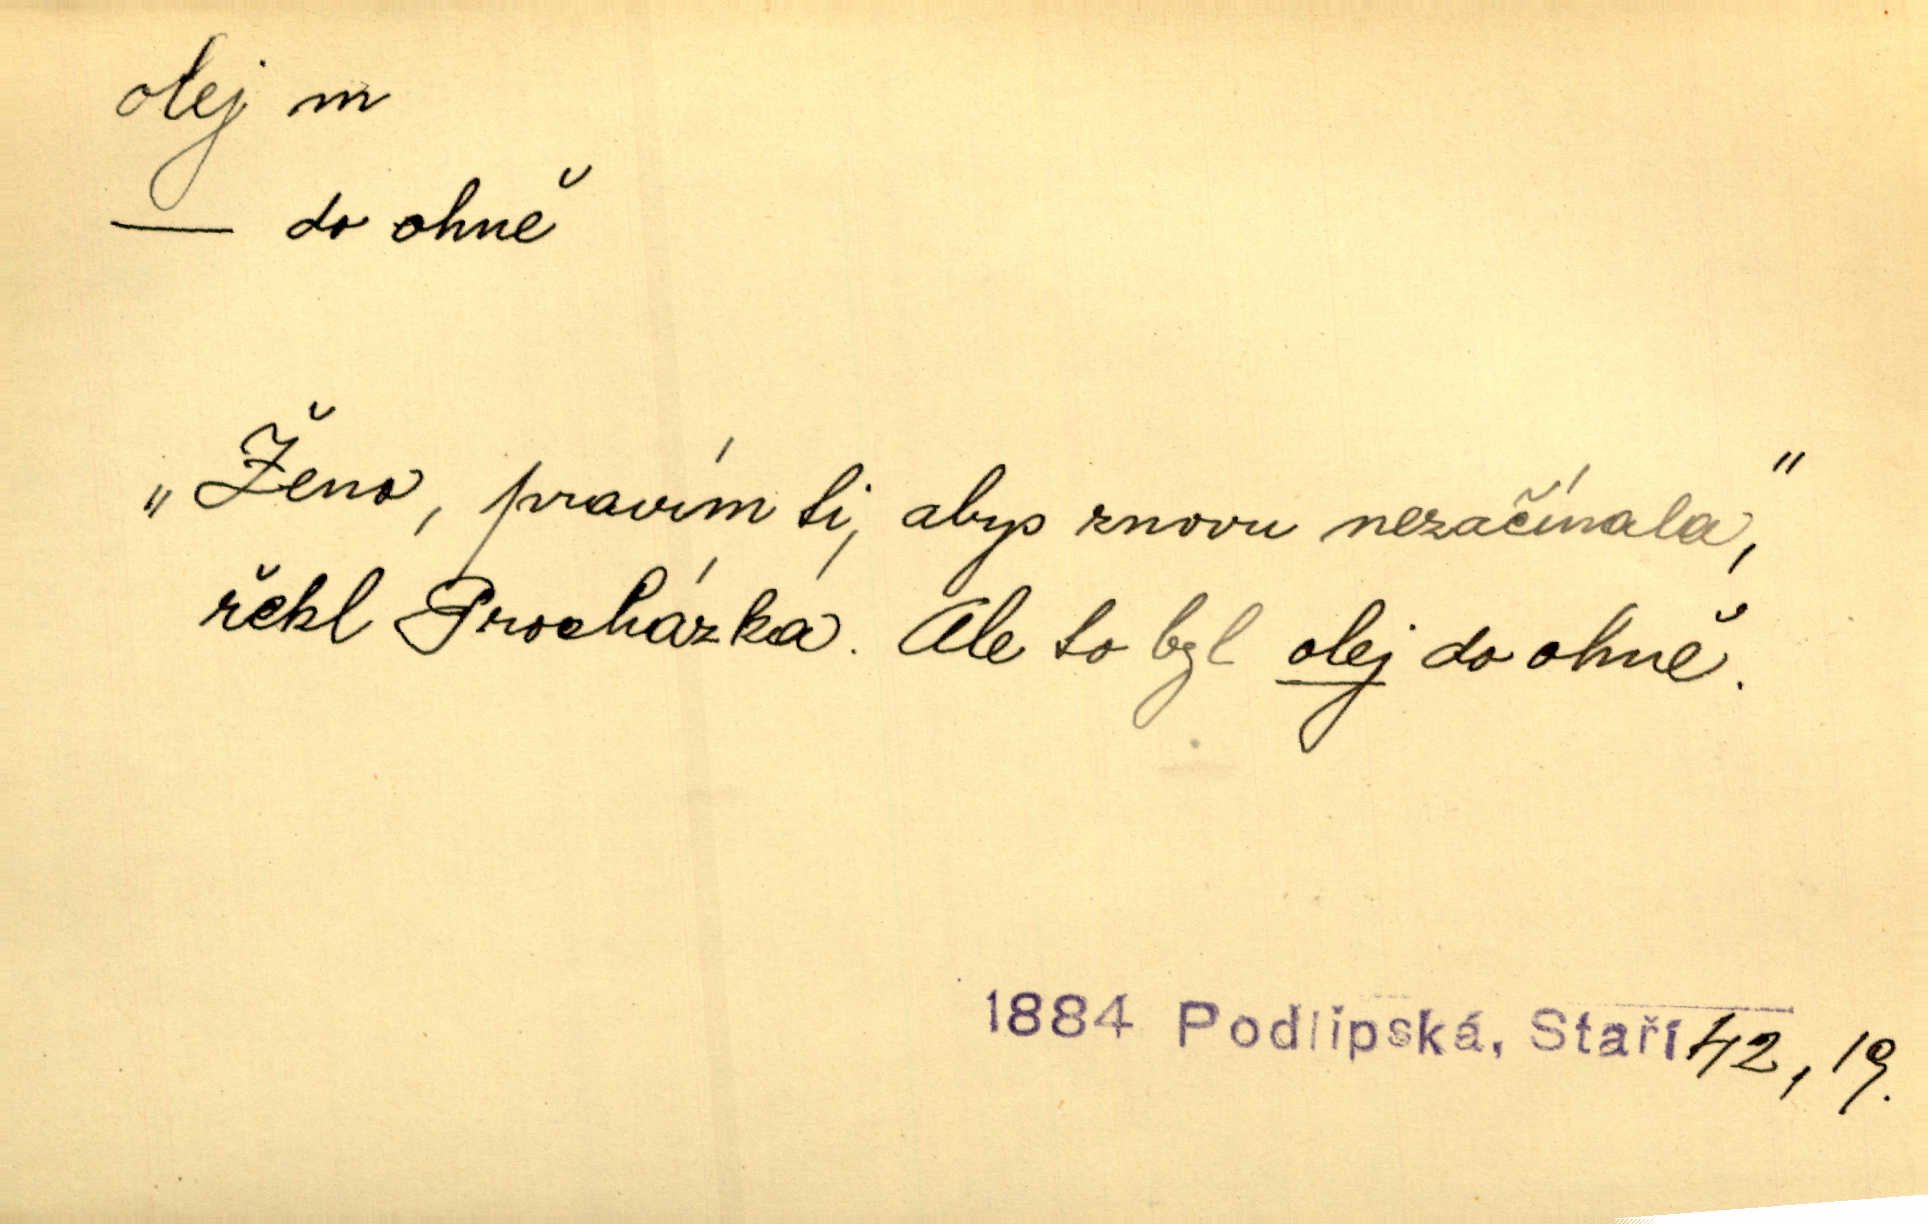 olej m
— do ohně
„Ženo, pravím ti, abys znovu nezačínala,"
řekl Procházka. Ale to byl olej do ohně.
1884 Podlipská, Staří 42, 19.